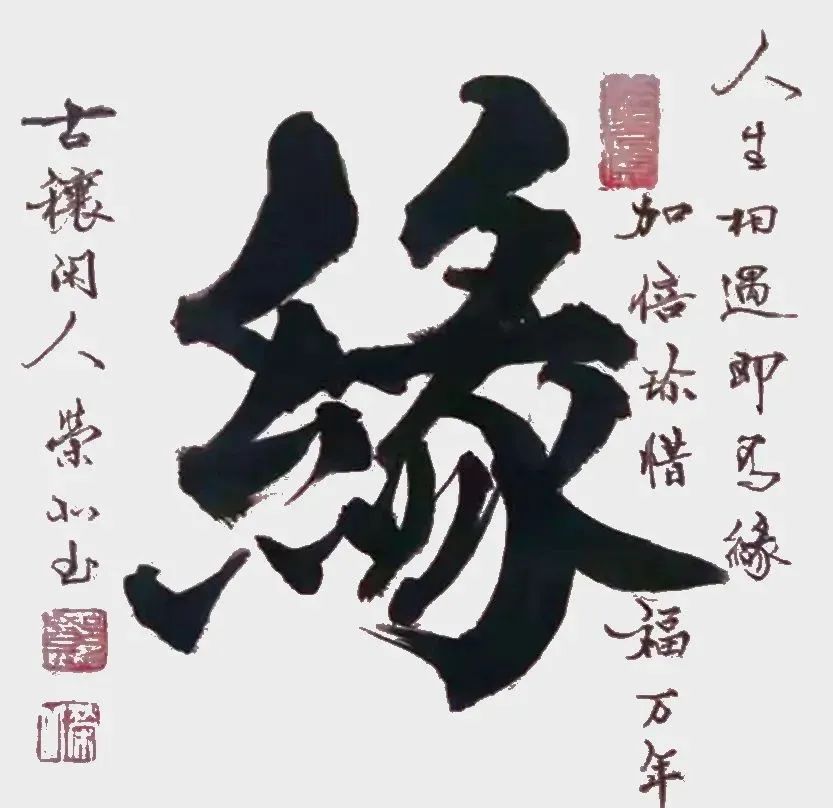 人生相遇即为缘
加倍珍惜福万年
緣
古穰闲人荣